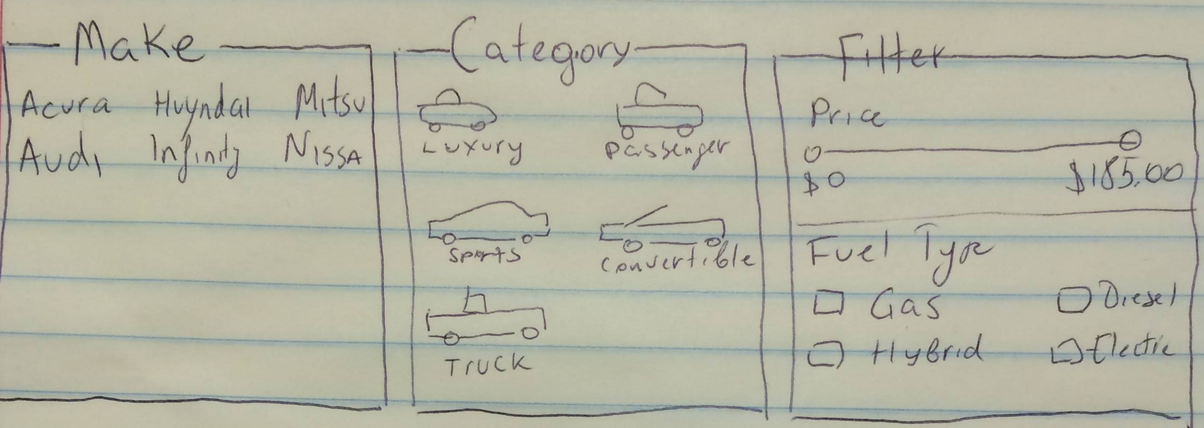 Make
Acura Huyndai Mitsu
Audi Infinity Nissa
Category
Luxury Passenger
Sports Convertible
Truck
Filter
Price
$0 $185.00
Fuel Type
Gas Diesel
Hybrid Electic